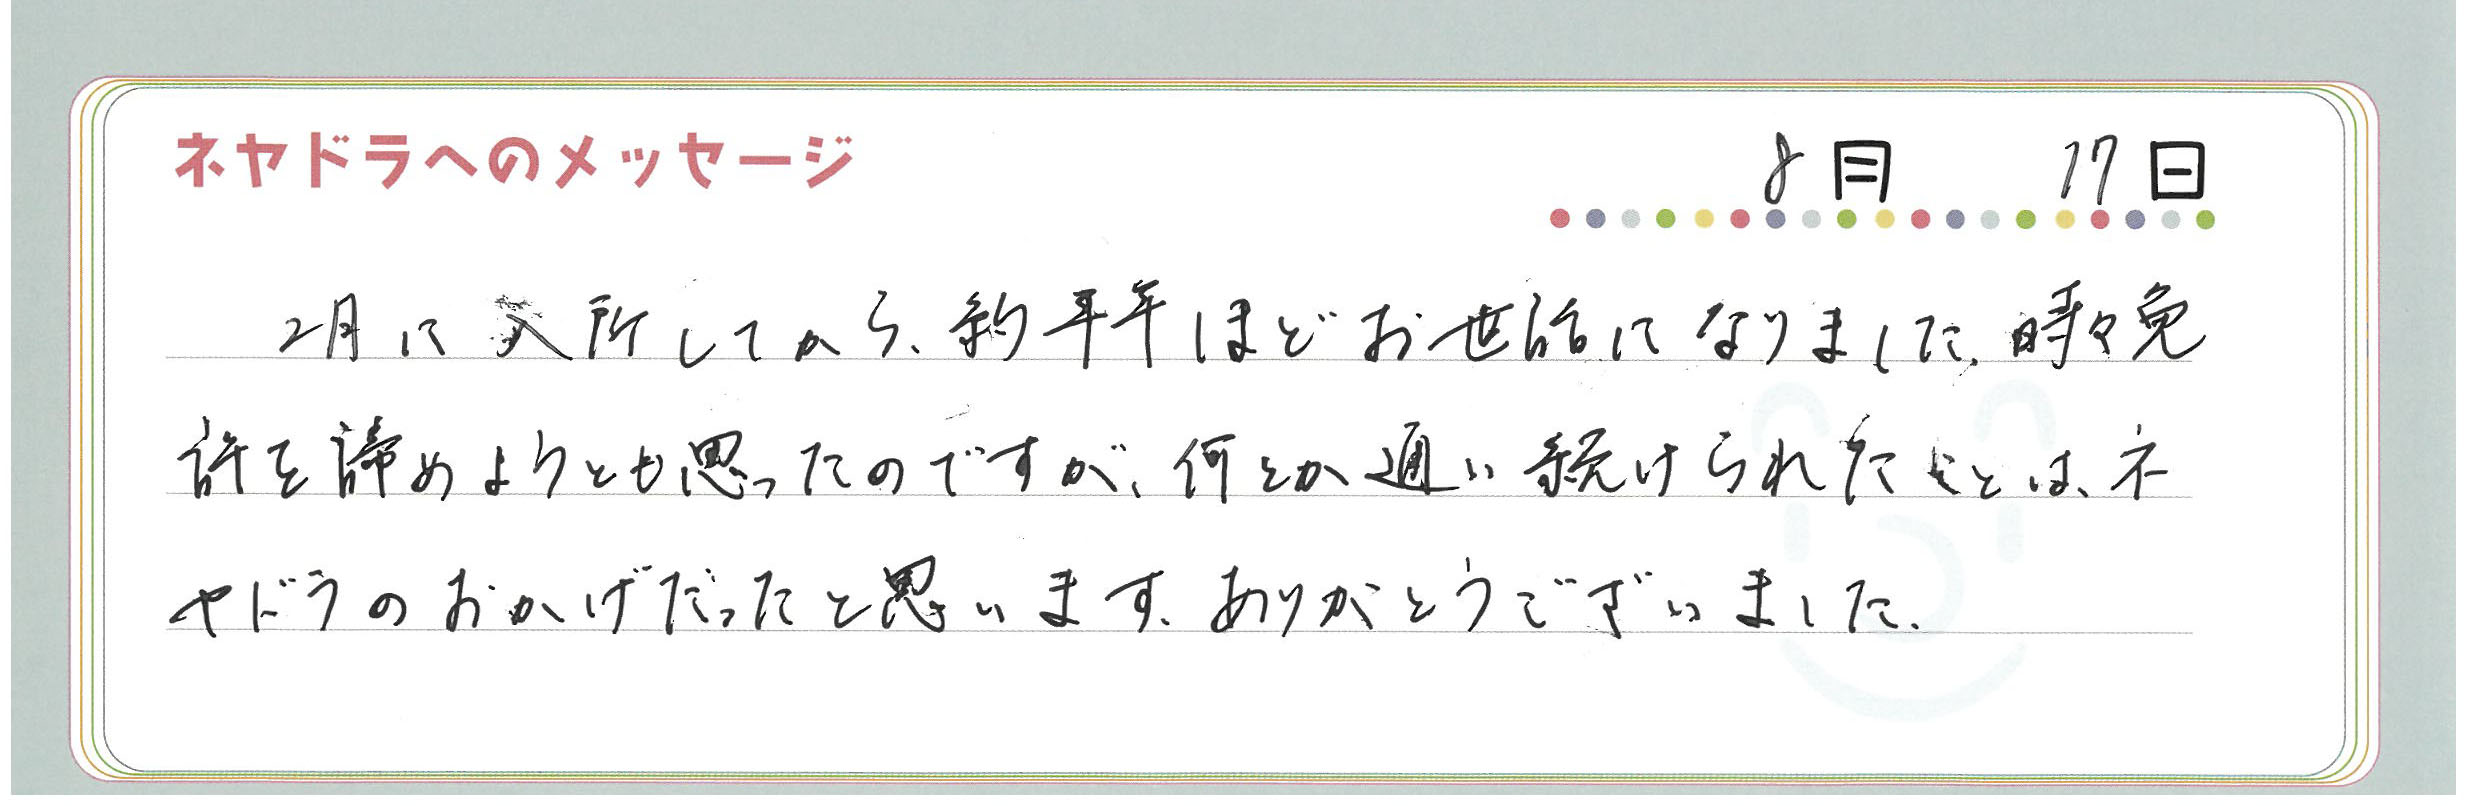 ネヤドラへのメッセージ
8月 17日
2月に入所してから、約半年ほどお世話になりました。時々免
許を諦めようとも思ったのですが、何とか通い続けられたことは、ネ
ヤドラのおかげだったと思います。ありがとうございました。